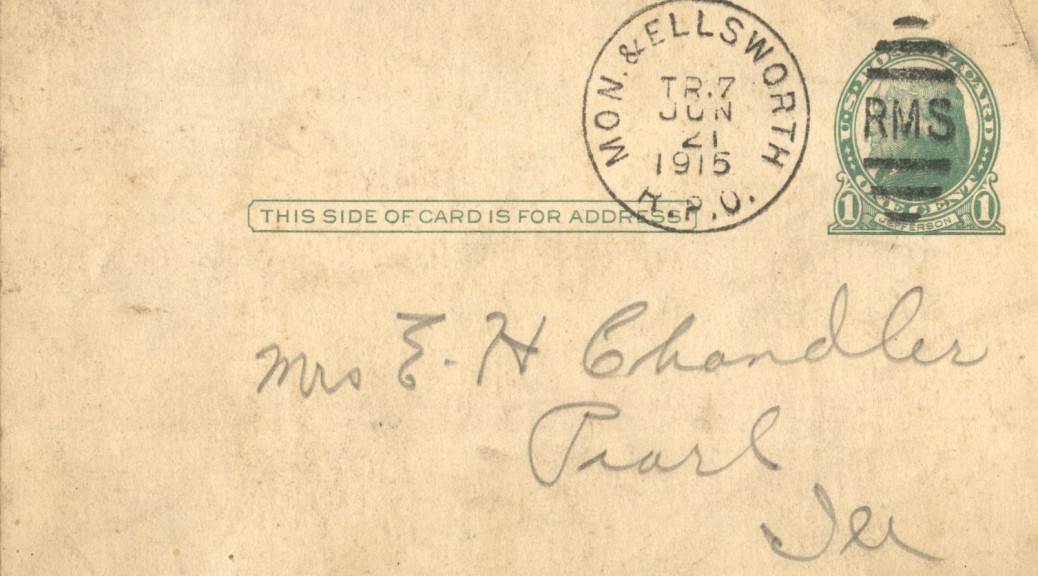 MON. & ELLSWORTH
TR.7
JUN
21
1915
R.P.O.
U·S·POSTAL CARD
RMS
ONE CENT
1 JEFFERSON 1
THIS SIDE OF CARD IS FOR ADDRESS
Mrs E. H Chandler
Pearl
Ill